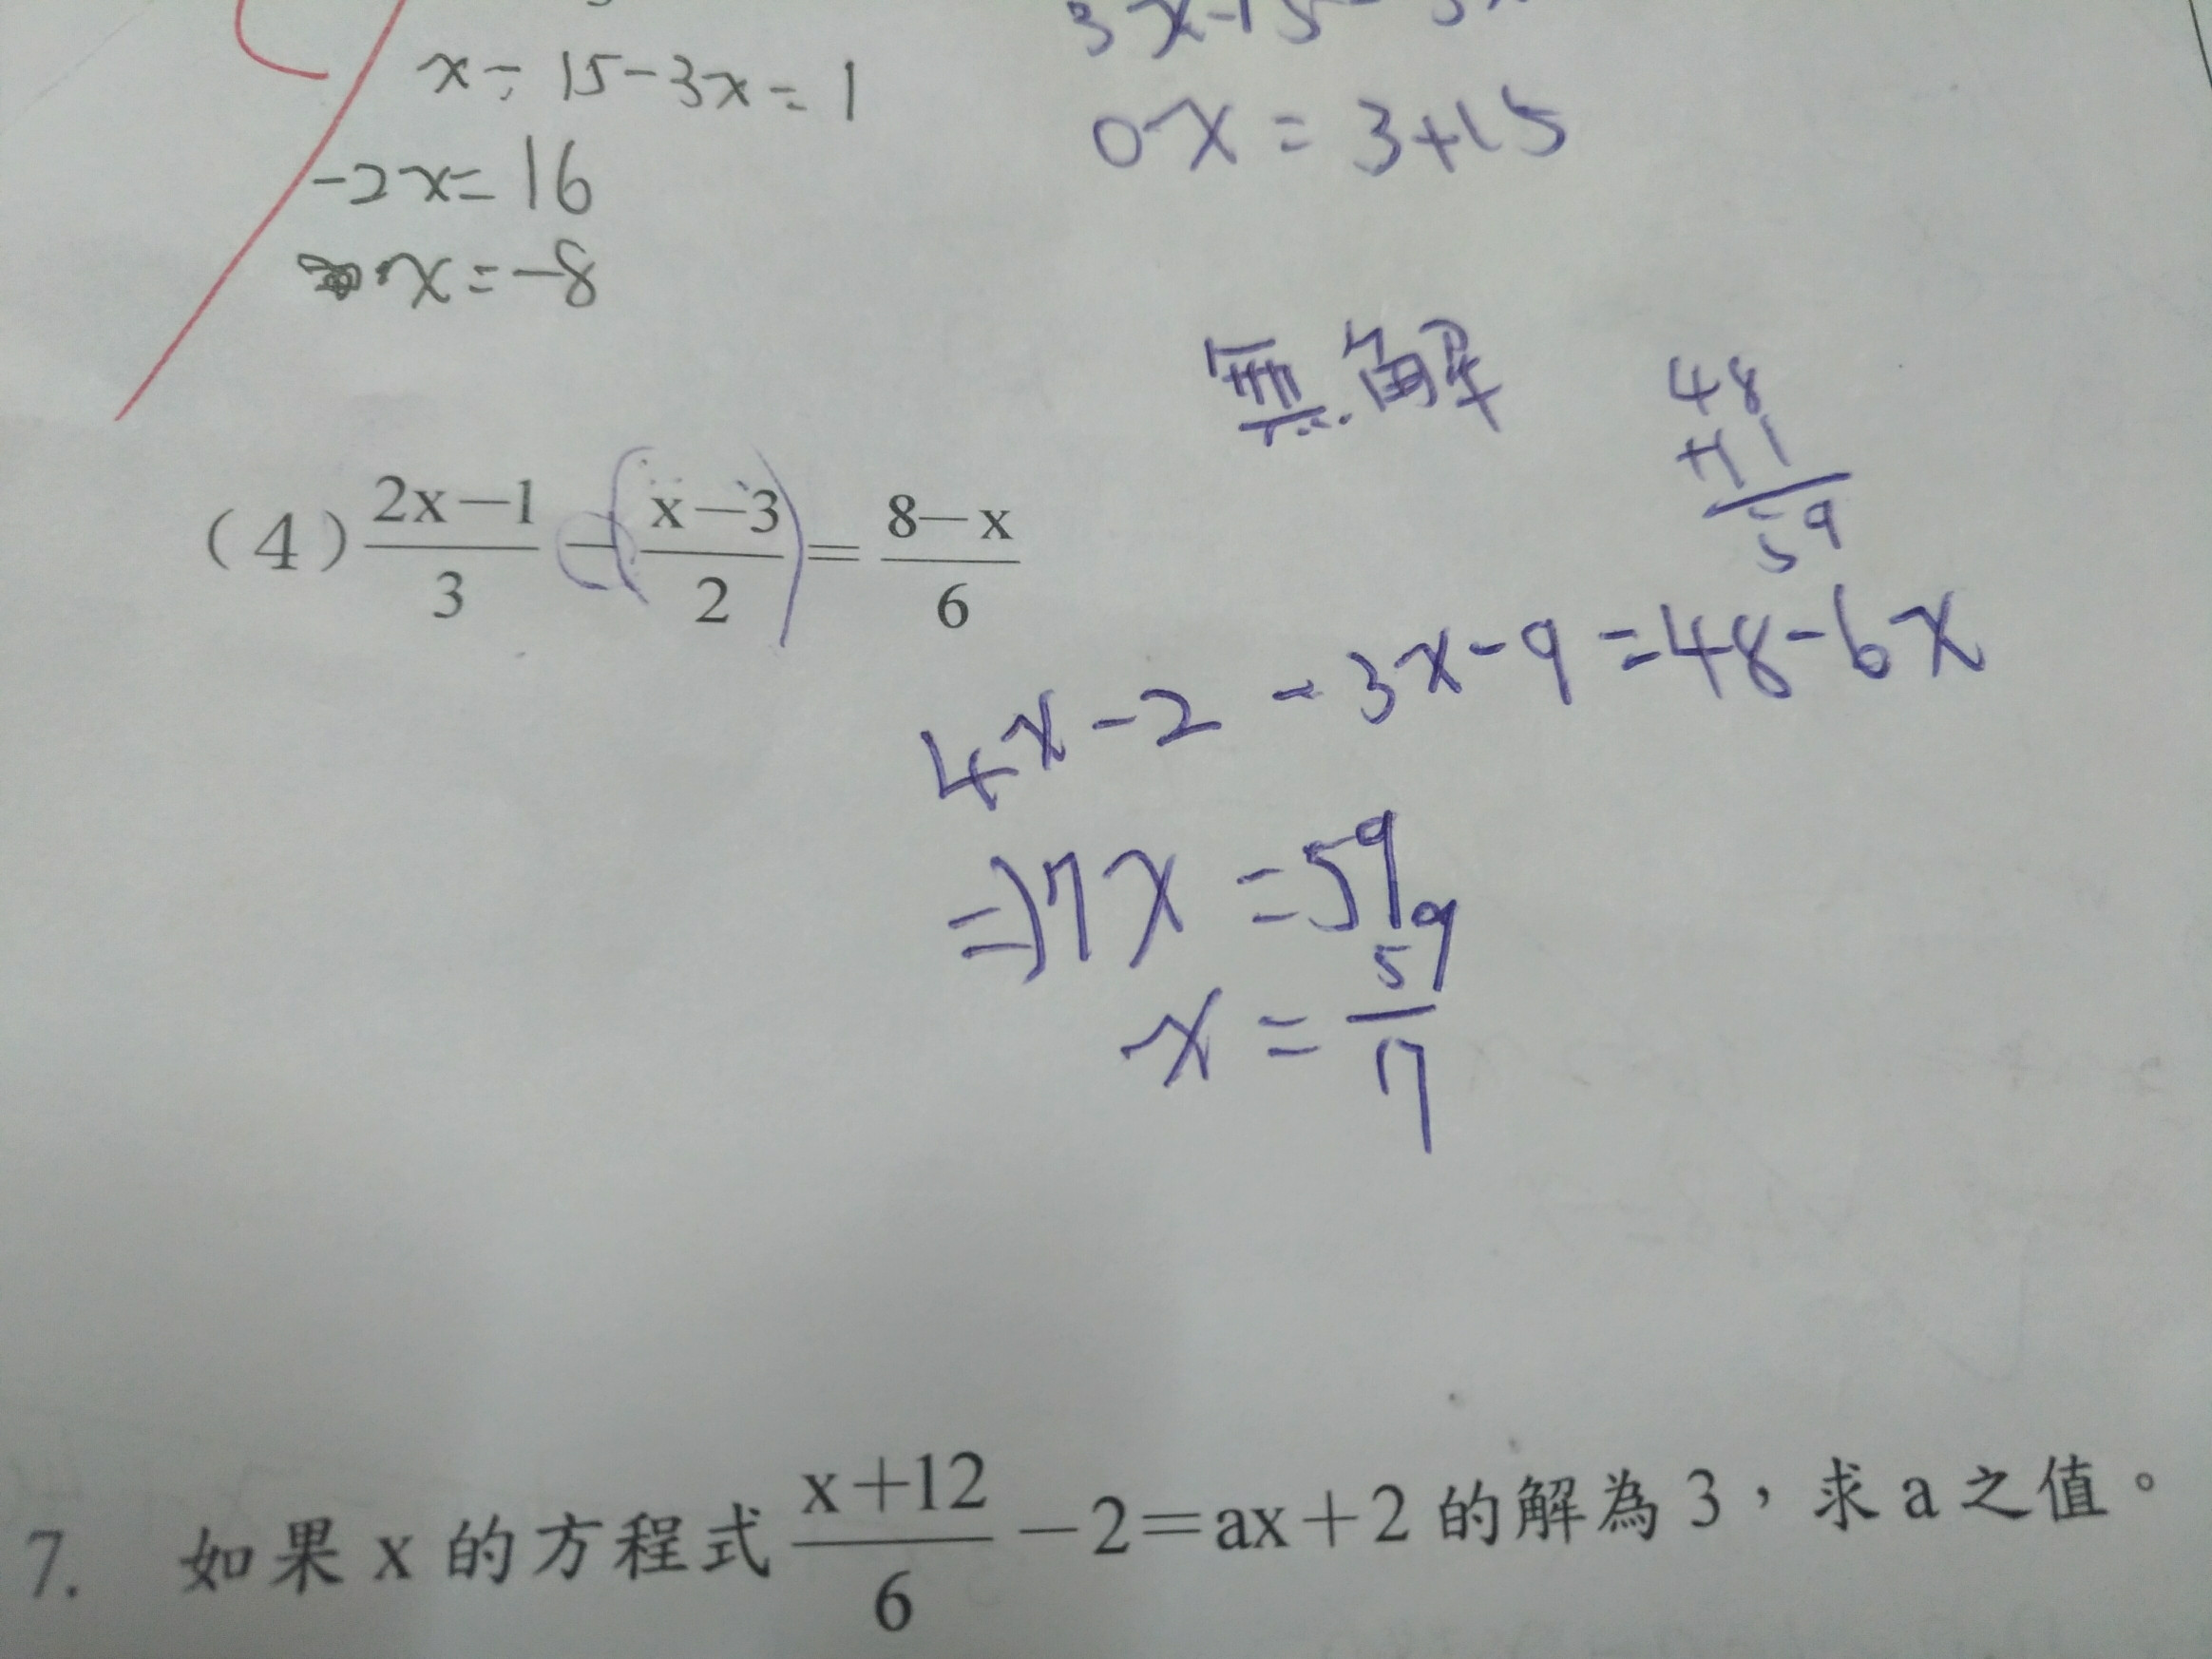 x - 15 - 3x = 1
-2x = 16
x = -8
0x = 3+15
無解
48
+11
59
(4) \frac{2x-1}{3} - (\frac{x-3}{2}) = \frac{8-x}{6}
4x-2 -3x-9 =48-6x
⇒7x = 59
x = \frac{59}{7}
7. 如果 x 的方程式 \frac{x+12}{6} -2=ax+2 的解為 3，求 a 之值。